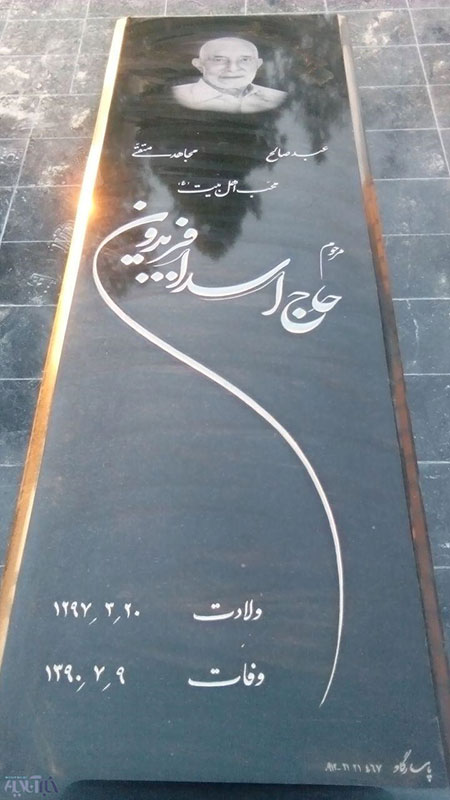 عبد صالح مجاهد متقی
محب اهل بیت
مرحوم
حاج اسدا... فریدون
ولادت ۱۲۹۷/۳/۲۰
وفات ۱۳۹۰/۷/۹
پاسارگاد